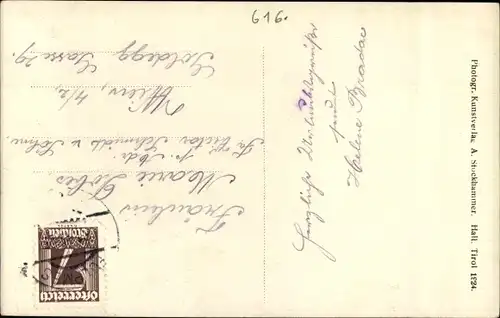 616.
Herzliche Urlaubsgrüße
sendet
Helene Bradac
Photogr. Kunstverlag A. Stockhammer, Hall, Tirol 1924.
Fräulein
Marie
p. Adr.
Fa Victor Schmidt u. Söhne
Wien, 4/2
Goldegg
Gasse 29.
7
Groschen
Österreich